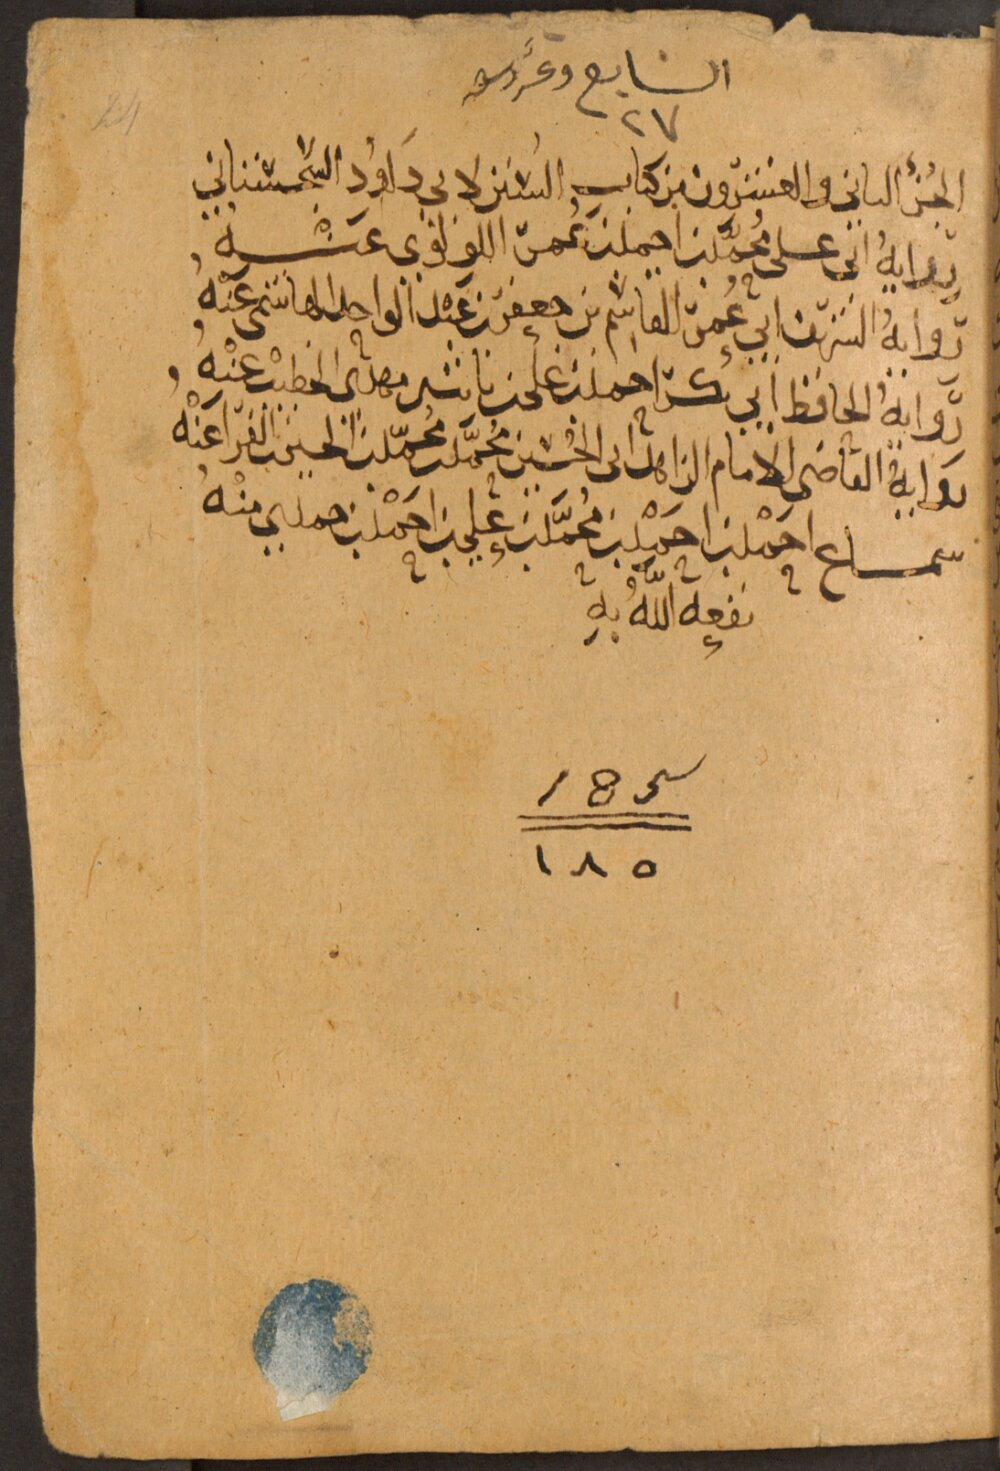 السابع وعشرون
٢٧
الجُزءُ الثاني والعشرون من كتاب السُنن لابي دَاوُد السِّجِستاني
رِوايةُ ابي علي مُحمَّد بن احمد بن عُمر اللؤلؤي عَنْهُ
رِوايةُ الشريف ابي عُمر القاسم بن جعفر بن عَبْد الواحد الهاشمي عَنْهُ
رِوايةُ الحافظ ابي بكر احمد بن علي بن ثابت بن مهدي الخطيب عَنْهُ
رِوَايةُ القاضي الامام الزاهد ابي الحُسَين مُحمَّد بن مُحمَّد بن الحسين الفرّا عَنْهُ
سماع احمَد بن احمَد بن مُحمَّد بن علي بن احمَد بن حمدي منْهُ
نفعه اللّهُ بِهِ
١٨٥